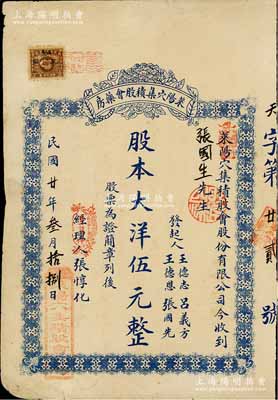 上海陽明拍賣
來陽六集積股會藥房
天字第廿貳號
來陽六集積股會股份有限公司今收到
張國生先生
發起人 王德志 呂義方
王德恩 張國先
股本大洋伍元整
股票為證簡章列後
經理人張惇化
民國廿年叁月拾捌日